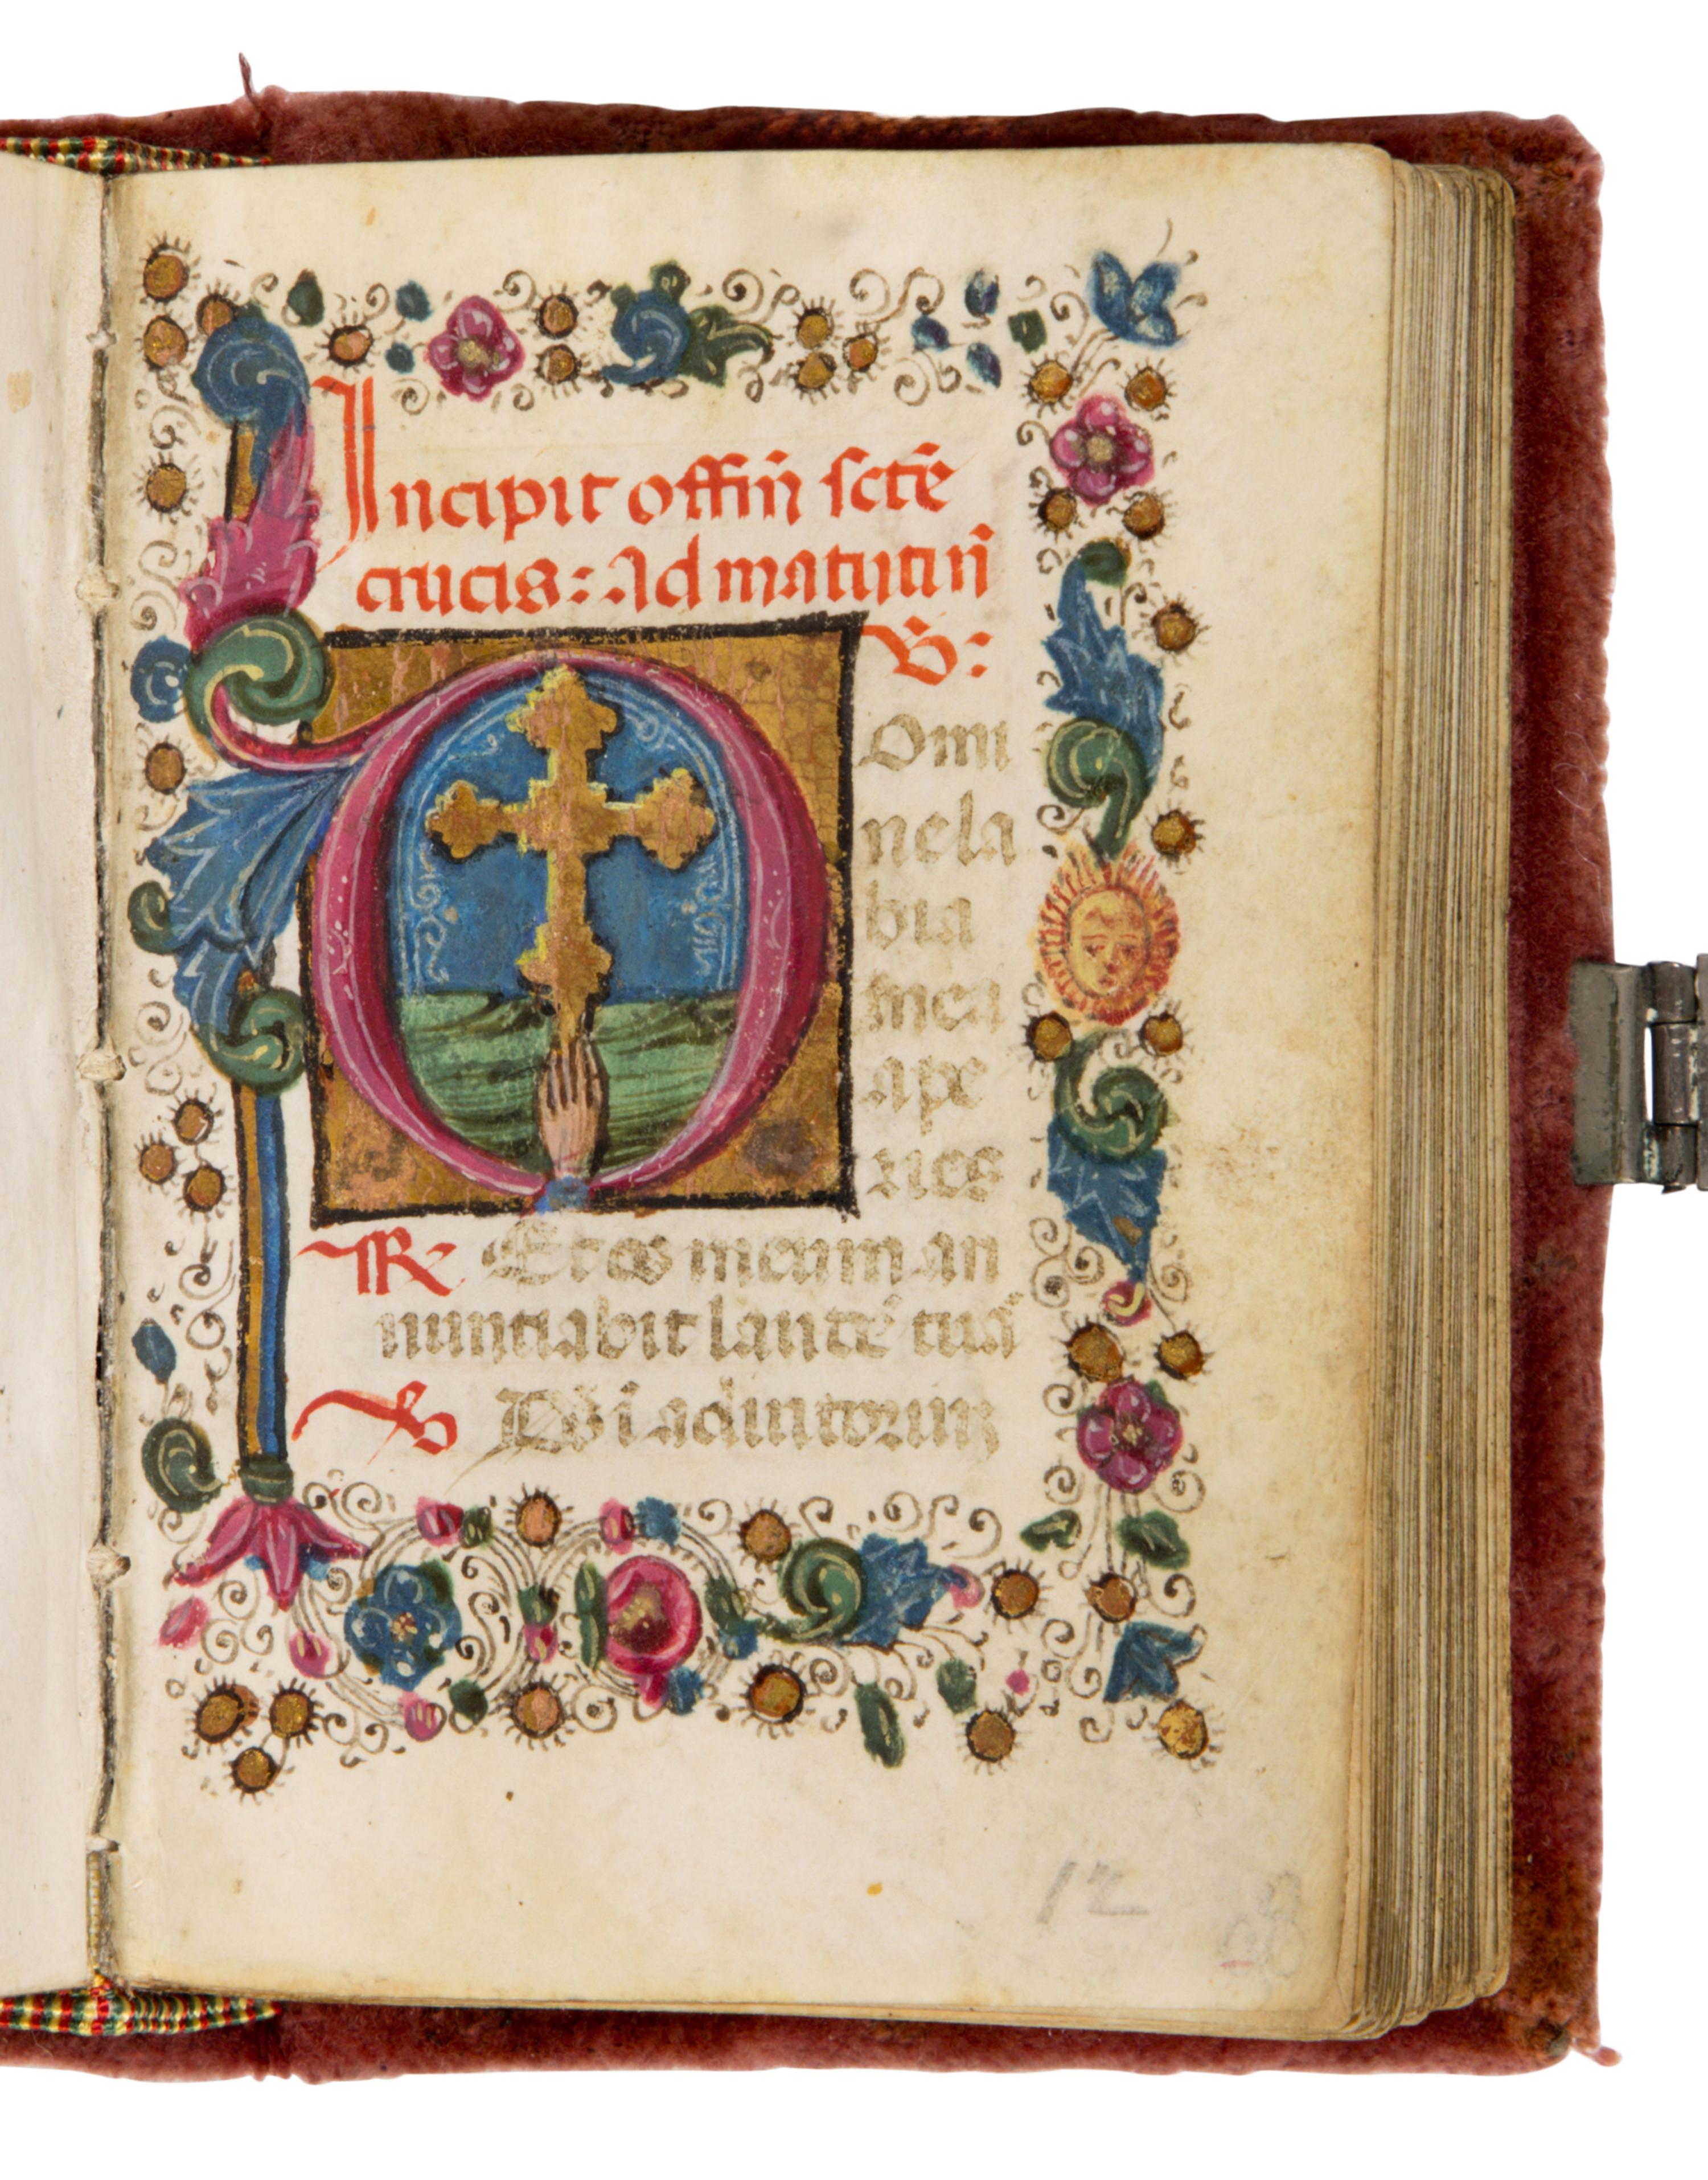 Incipit offiū scte
crucis: Ad matutin̄
V̇:
Omi
nela
bia
mea
ape
ries
R Et os meum an
nuntiabit laudē tuā
V D̄s ī adiutorium
12